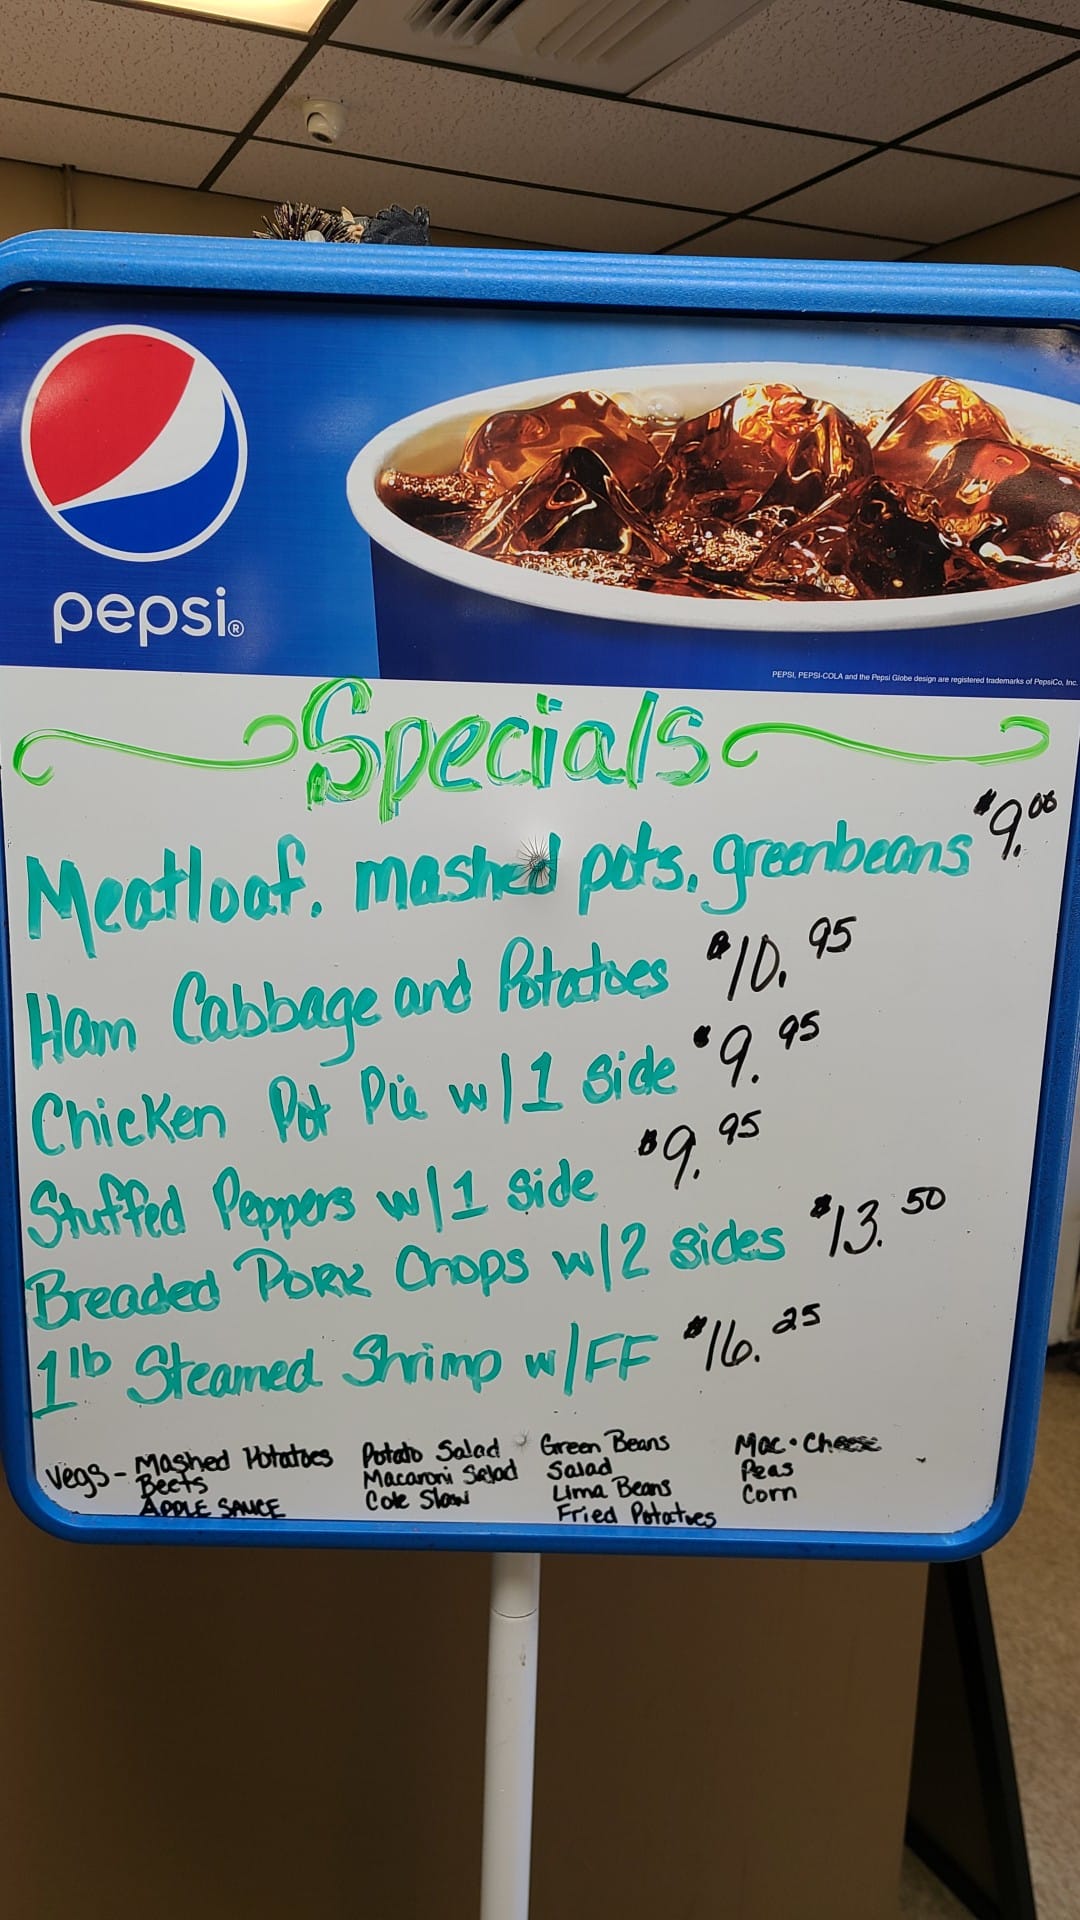 pepsi®
PEPSI, PEPSI-COLA and the Pepsi Globe design are registered trademarks of PepsiCo, Inc.
Specials
Meatloaf. mashed pots. greenbeans $9.00
Ham Cabbage and Potatoes $10.95
Chicken Pot Pie w/1 side $9.95
Stuffed Peppers w/1 side $9.95
Breaded Pork Chops w/2 sides $13.50
1 lb Steamed Shrimp w/FF $16.25
Vegs - Mashed Potatoes
Beets
APPLE SAUCE
Potato Salad
Macaroni Salad
Cole Slaw
Green Beans
Salad
Lima Beans
Fried Potatoes
Mac · Cheese
Peas
Corn